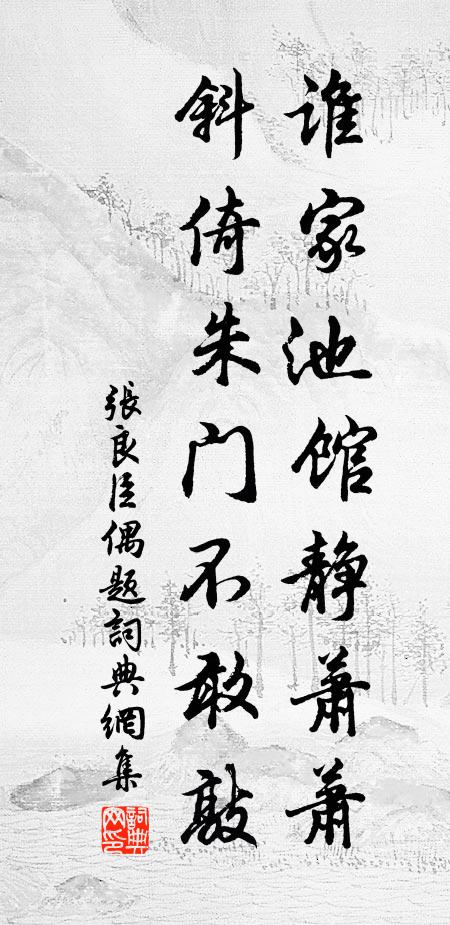 谁家池馆静萧萧
斜倚朱门不敢敲
張良臣偶題詞典網集
詞典網印